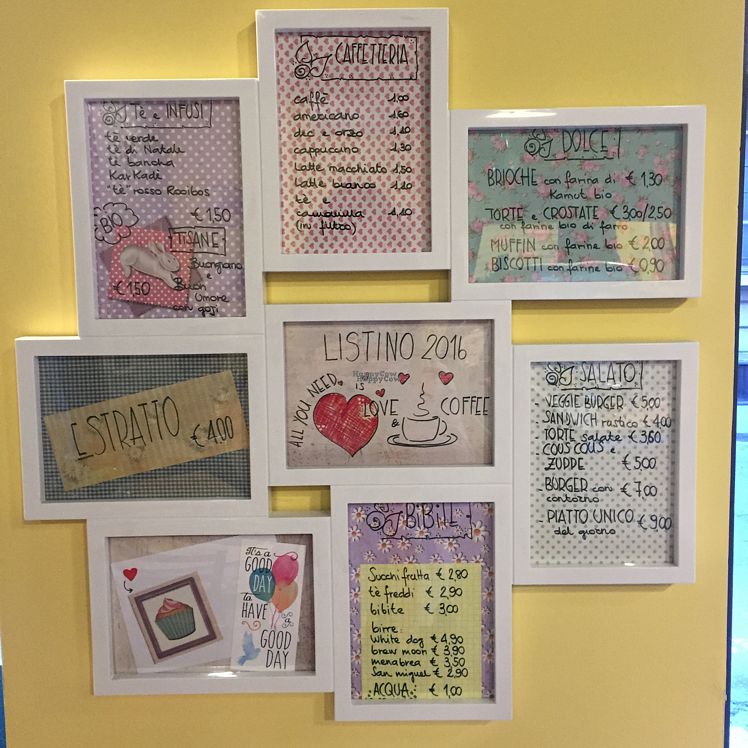 CAFFETTERIA
caffè 1.00
americano 1.60
dec e orzo 1.10
cappuccino 1.30
Latte macchiato 1.50
Latte bianco 1.10
tè e
camomilla 1.10
(in filtro)
Tè e INFUSI
tè verde
tè di Natale
tè bancha
KarKadè
"tè" rosso Rooibos
€ 1,50
BIO
TISANE
Buongiorno
e
Buon
Umore
con goji
€ 1.50
DOLCE
BRIOCHE con farina di € 1,30
Kamut bio
TORTE e CROSTATE € 3.00/2,50
con farine bio di farro
MUFFIN con farine bio € 2.00
BISCOTTI con farine bio € 0,90
ESTRATTO € 4.00
LISTINO 2016
HappyCow
HappyCow
ALL YOU NEED IS
LOVE
& COFFEE
SALATO
VEGGIE BURGER € 5,00
SANDWICH rustico € 4.00
TORTE salate € 3,60
COUS COUS e
ZUPPE € 5,00
-BURGER con € 7,00
contorno
-PIATTO UNICO € 9,00
del giorno
IT'S A
GOOD
DAY
to
HAVE
a
GOOD
DAY
BIBITE
Succhi frutta € 2,80
tè freddi € 2,90
bibite € 3,00
birre:
White dog € 4,90
brew moon € 3,90
menabrea € 3,50
San miguel € 2,90
ACQUA € 1,00